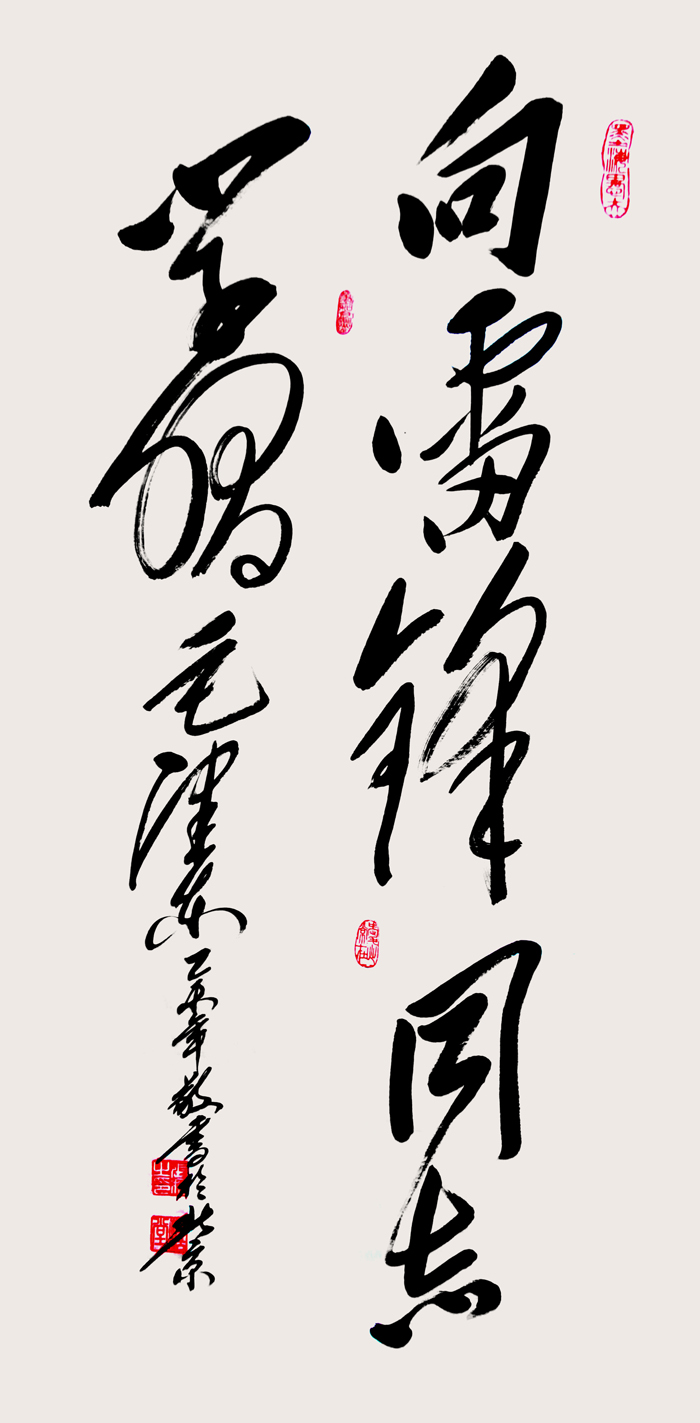 向雷锋同志
学习毛泽东乙未年敬书於北京